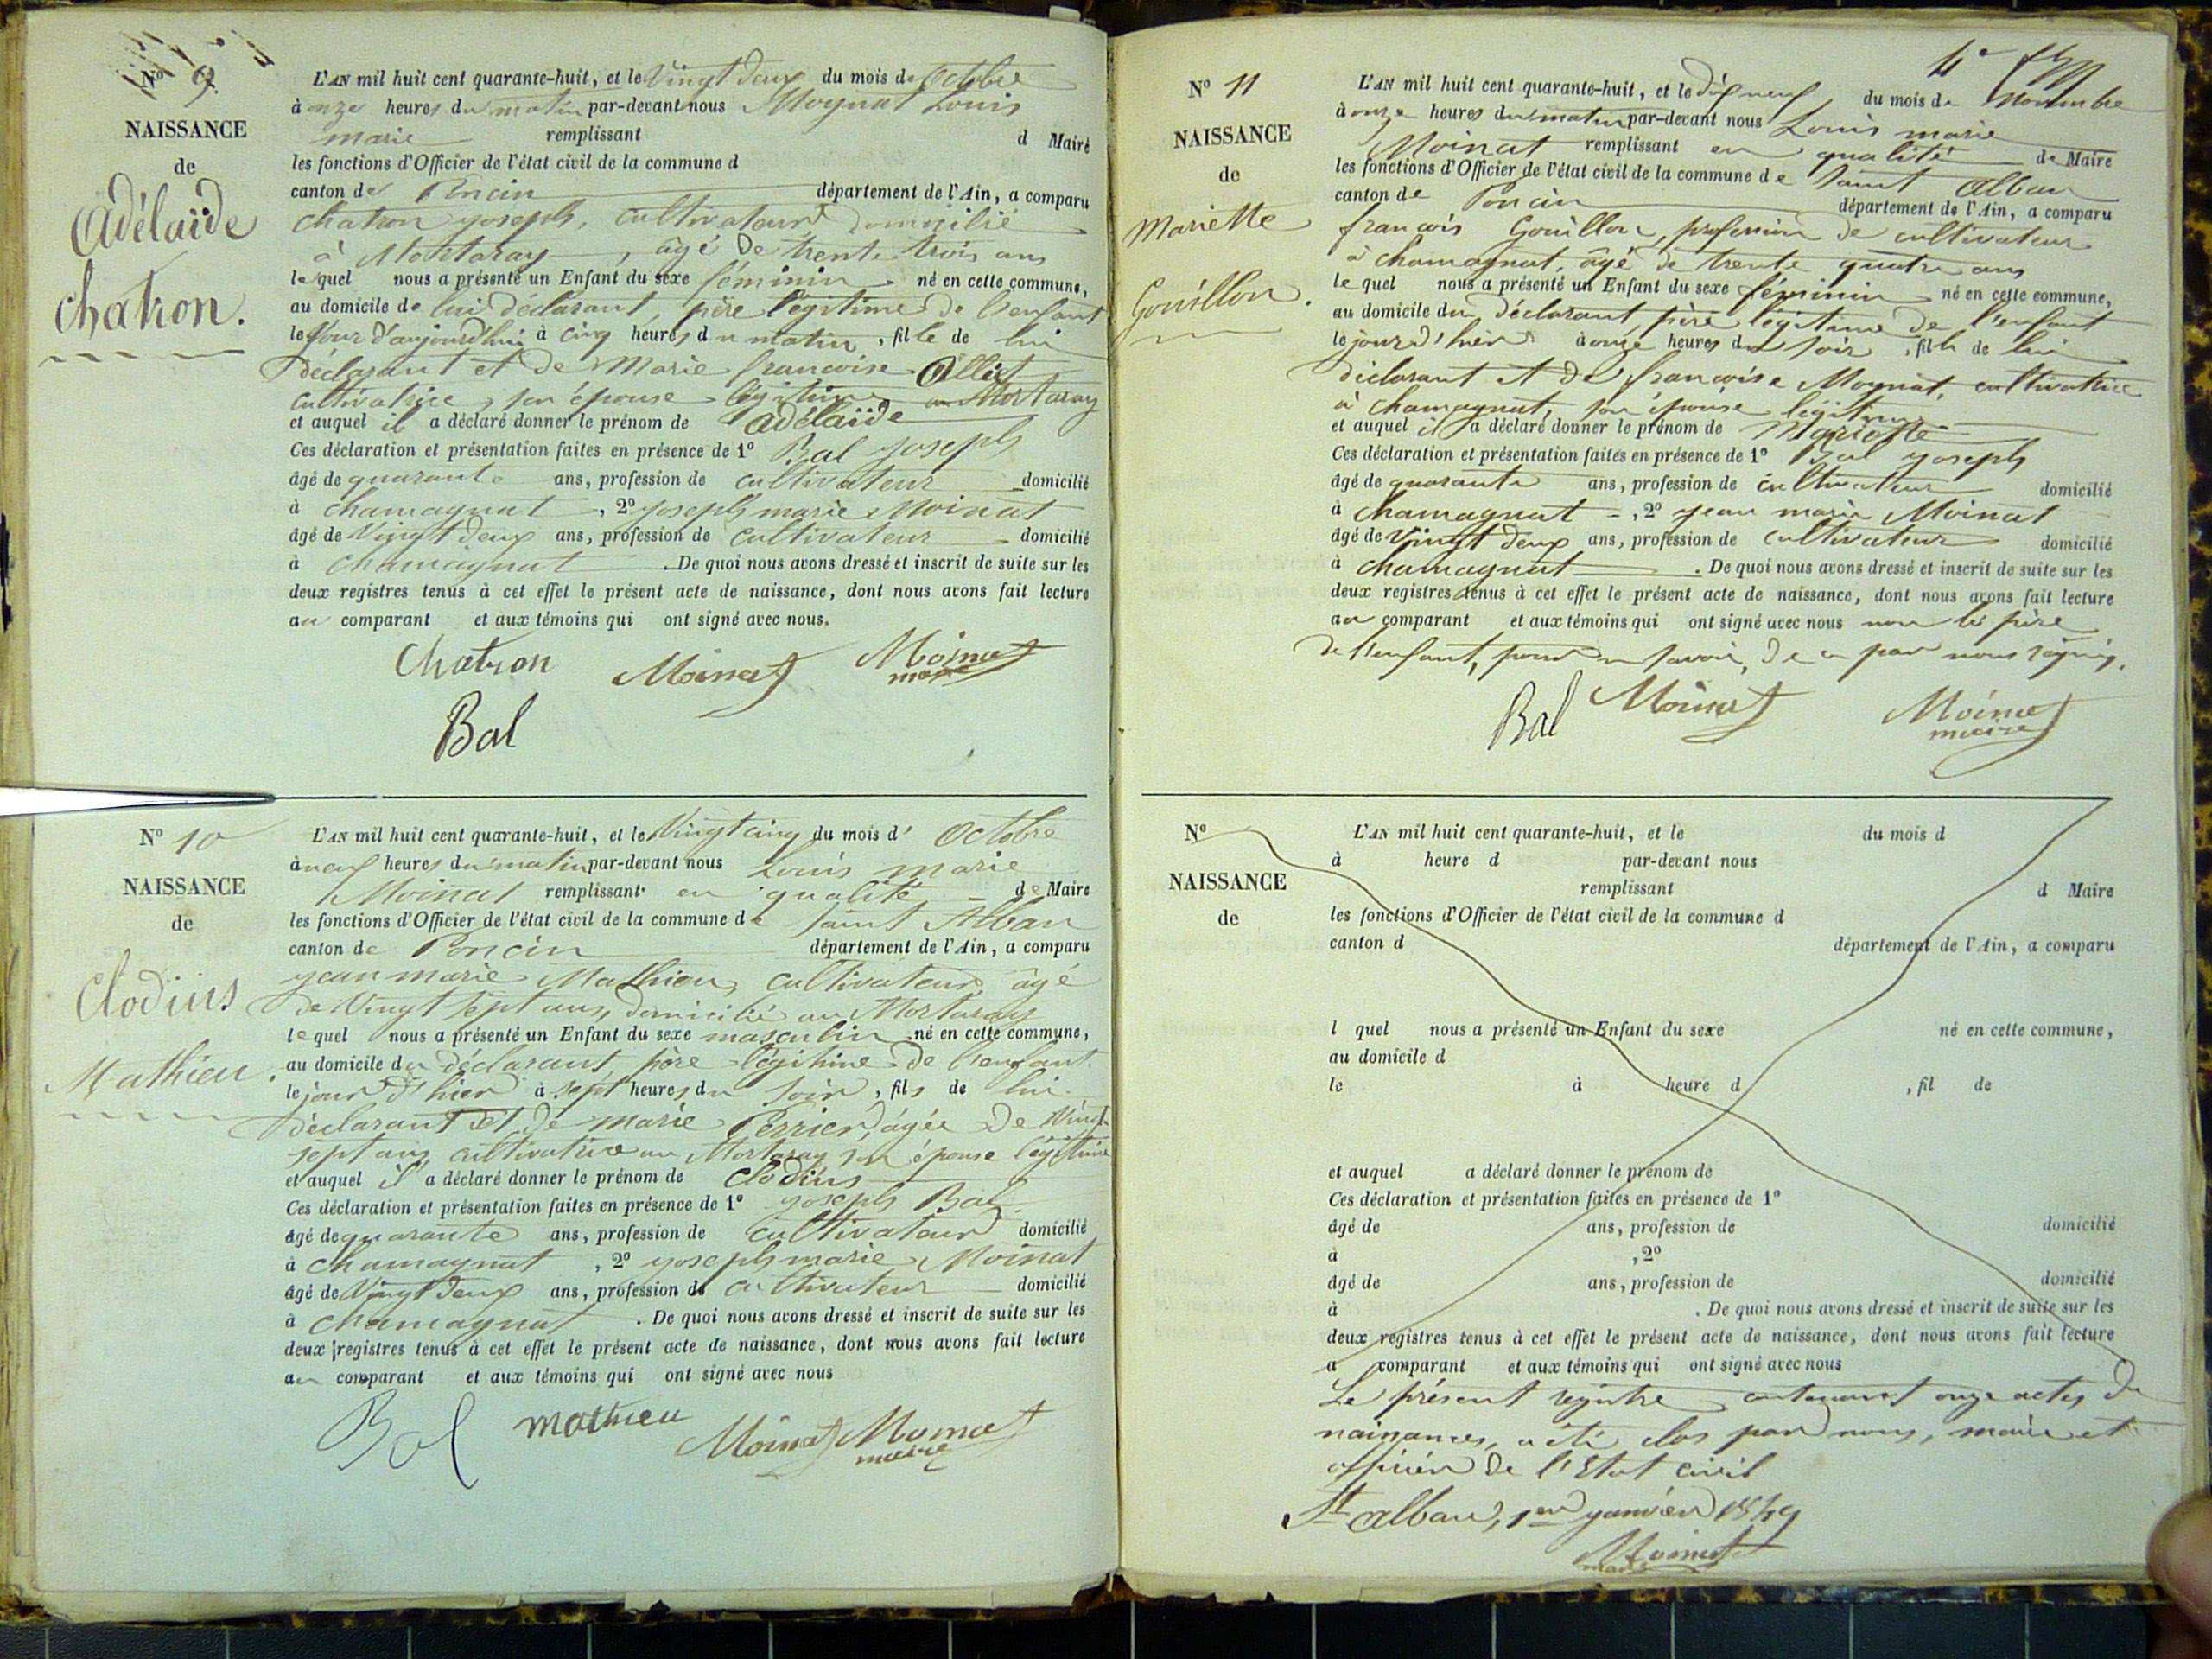 N° 9
NAISSANCE
de
Adélaïde
Chatron.
L'AN mil huit cent quarante-huit, et le Vingt deux du mois de Octobre
à onze heures du matin par-devant nous Moynat Louis
marie remplissant d Maire
les fonctions d'Officier de l'état civil de la commune d
canton de Poncin département de l'Ain, a comparu
Chatron joseph, cultivateur domicilié
à Mortaray, âgé de trente trois ans
lequel nous a présenté un Enfant du sexe féminin né en cette commune,
au domicile de lui déclarant, père légitime de l'enfant
le jour d'aujourd'hui à cinq heures du matin, fille de lui
déclarant et de Marie françoise Alliet
cultivatrice, son épouse légitime au Mortaray
et auquel il a déclaré donner le prénom de Adélaïde
Ces déclaration et présentation faites en présence de 1° Bal joseph
âgé de quarante ans, profession de cultivateur domicilié
à chamagnat, 2° joseph marie Moinat
âgé de Vingt deux ans, profession de cultivateur domicilié
à chamagnat. De quoi nous avons dressé et inscrit de suite sur les
deux registres tenus à cet effet le présent acte de naissance, dont nous avons fait lecture
au comparant et aux témoins qui ont signé avec nous.
Chatron Moinat Moinat
maire
Bal
N° 10
NAISSANCE
de
Clodius
Mathieu.
L'AN mil huit cent quarante-huit, et le Vingt cinq du mois d' Octobre
à neuf heures du matin par-devant nous Louis marie
Moinat remplissant en qualité de Maire
les fonctions d'Officier de l'état civil de la commune de Saint Alban
canton de Poncin département de l'Ain, a comparu
jean marie Mathieu, cultivateur, âgé
de Vingt sept ans, domicilié au Mortaray
lequel nous a présenté un Enfant du sexe masculin né en cette commune,
au domicile du déclarant, père légitime de l'enfant
le jour d'hier à sept heures du soir, fils de lui
déclarant et de marie Perrier, âgée de Vingt
sept ans, cultivatrice au Mortaray son épouse légitime
et auquel il a déclaré donner le prénom de Clodius
Ces déclaration et présentation faites en présence de 1° joseph Bal
âgé de quarante ans, profession de cultivateur domicilié
à chamagnat, 2° joseph marie Moinat
âgé de Vingt deux ans, profession de cultivateur domicilié
à chamagnat. De quoi nous avons dressé et inscrit de suite sur les
deux registres tenus à cet effet le présent acte de naissance, dont nous avons fait lecture
au comparant et aux témoins qui ont signé avec nous
Bal mathieu Moinat Moinat
maire
N° 11
NAISSANCE
de
Mariette
Gouillon.
L'AN mil huit cent quarante-huit, et le dix neuf du mois de Novembre
à onze heures du matin par-devant nous Louis marie
Moinat remplissant en qualité de Maire
les fonctions d'Officier de l'état civil de la commune de Saint Alban
canton de Poncin département de l'Ain, a comparu
françois Gouillon, profession de cultivateur
à chamagnat, âgé de trente quatre ans
lequel nous a présenté un Enfant du sexe féminin né en cette commune,
au domicile du déclarant père légitime de l'enfant
le jour d'hier à onze heures du soir, fille de lui
déclarant et de françoise Moynat, cultivatrice
à chamagnat, son épouse légitime
et auquel il a déclaré donner le prénom de Mariette
Ces déclaration et présentation faites en présence de 1° Bal joseph
âgé de quarante ans, profession de cultivateur domicilié
à chamagnat, 2° jean marie Moinat
âgé de Vingt deux ans, profession de cultivateur domicilié
à chamagnat. De quoi nous avons dressé et inscrit de suite sur les
deux registres tenus à cet effet le présent acte de naissance, dont nous avons fait lecture
au comparant et aux témoins qui ont signé avec nous non le père
de l'enfant, pour ne savoir, de ce par nous requis.
Bal Moinat Moinat
maire
N°
NAISSANCE
de
L'AN mil huit cent quarante-huit, et le du mois d
à heure d par-devant nous
remplissant d Maire
les fonctions d'Officier de l'état civil de la commune d
canton d département de l'Ain, a comparu
l quel nous a présenté un Enfant du sexe né en cette commune,
au domicile d
le à heure d , fil de
et auquel a déclaré donner le prénom de
Ces déclaration et présentation faites en présence de 1°
âgé de ans, profession de domicilié
à , 2°
âgé de ans, profession de domicilié
à . De quoi nous avons dressé et inscrit de suite sur les
deux registres tenus à cet effet le présent acte de naissance, dont nous avons fait lecture
a comparant et aux témoins qui ont signé avec nous
Le présent registre contenant onze actes de
naissances, a été clos par nous, maire et
officier de l'Etat civil
St alban, 1er janvier 1849
Moinat
maire